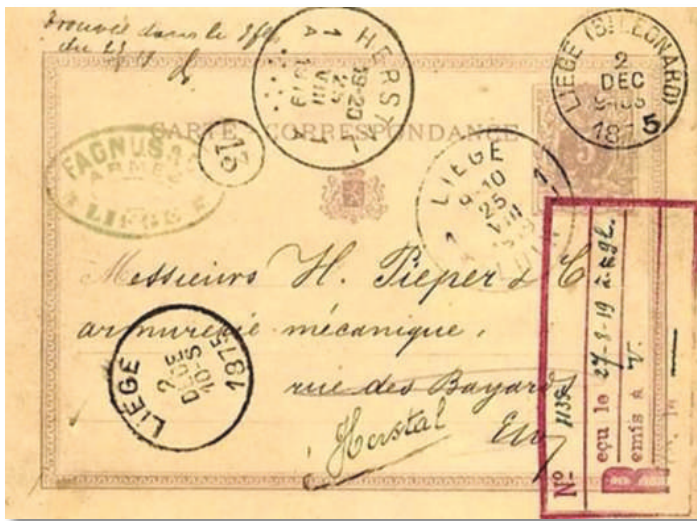 Trouvée dans le
du 23
HERSTAL
1A 1A
19-20
25
VIII
1919
LIEGE (ST LEONARD)
2
DEC
9-10 S
1875
CARTE-CORRESPONDANCE
5
13
FAGNUS & C
ARMES
A LIEGE
LIEGE
9-10
25
VIII
1
Messieurs H. Pieper & C
armurerie mécanique,
rue des Bayards
Herstal
LIÉGE
2
DECE
10-S
1875
No-
Reçu le 27-8-19
Remis à V.